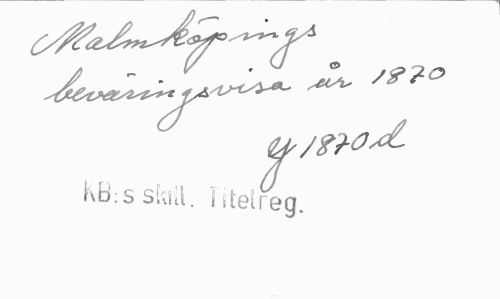 Malmköpings
beväringsvisa år 1870
Y 1870 d
KB:s skill. Titelreg.